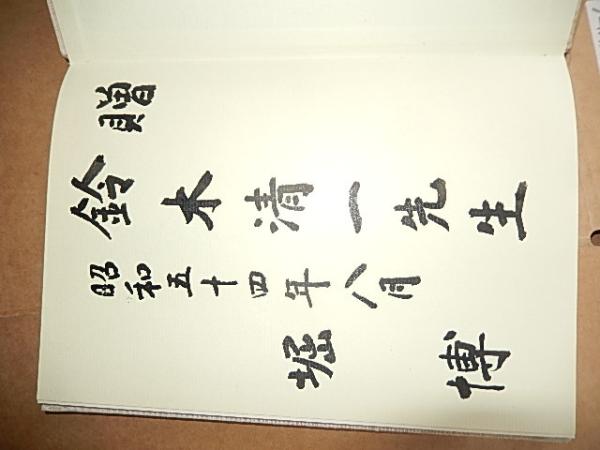 贈
鈴木清一先生
昭和五十四年八月
堀 博